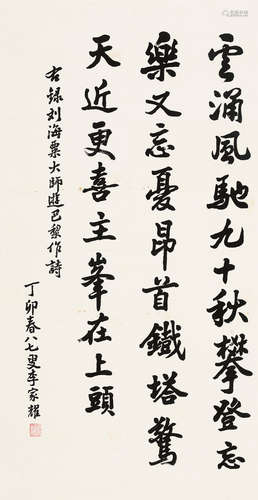 雲涌風馳九十秋攀登忘
樂又忘憂昂首鐵塔驚
天近更喜主峯在上頭
右録刘海粟大師遊巴黎作詩
丁卯春八七叟李家耀